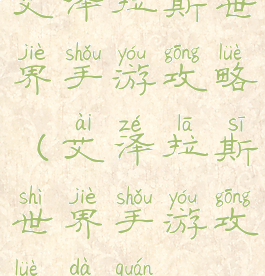 艾泽拉斯世
jiè shǒu yóu gōng lüè
界手游攻略
ài zé lā sī
（艾泽拉斯
shì jiè shǒu yóu gōng
世界手游攻
lüè dà quán